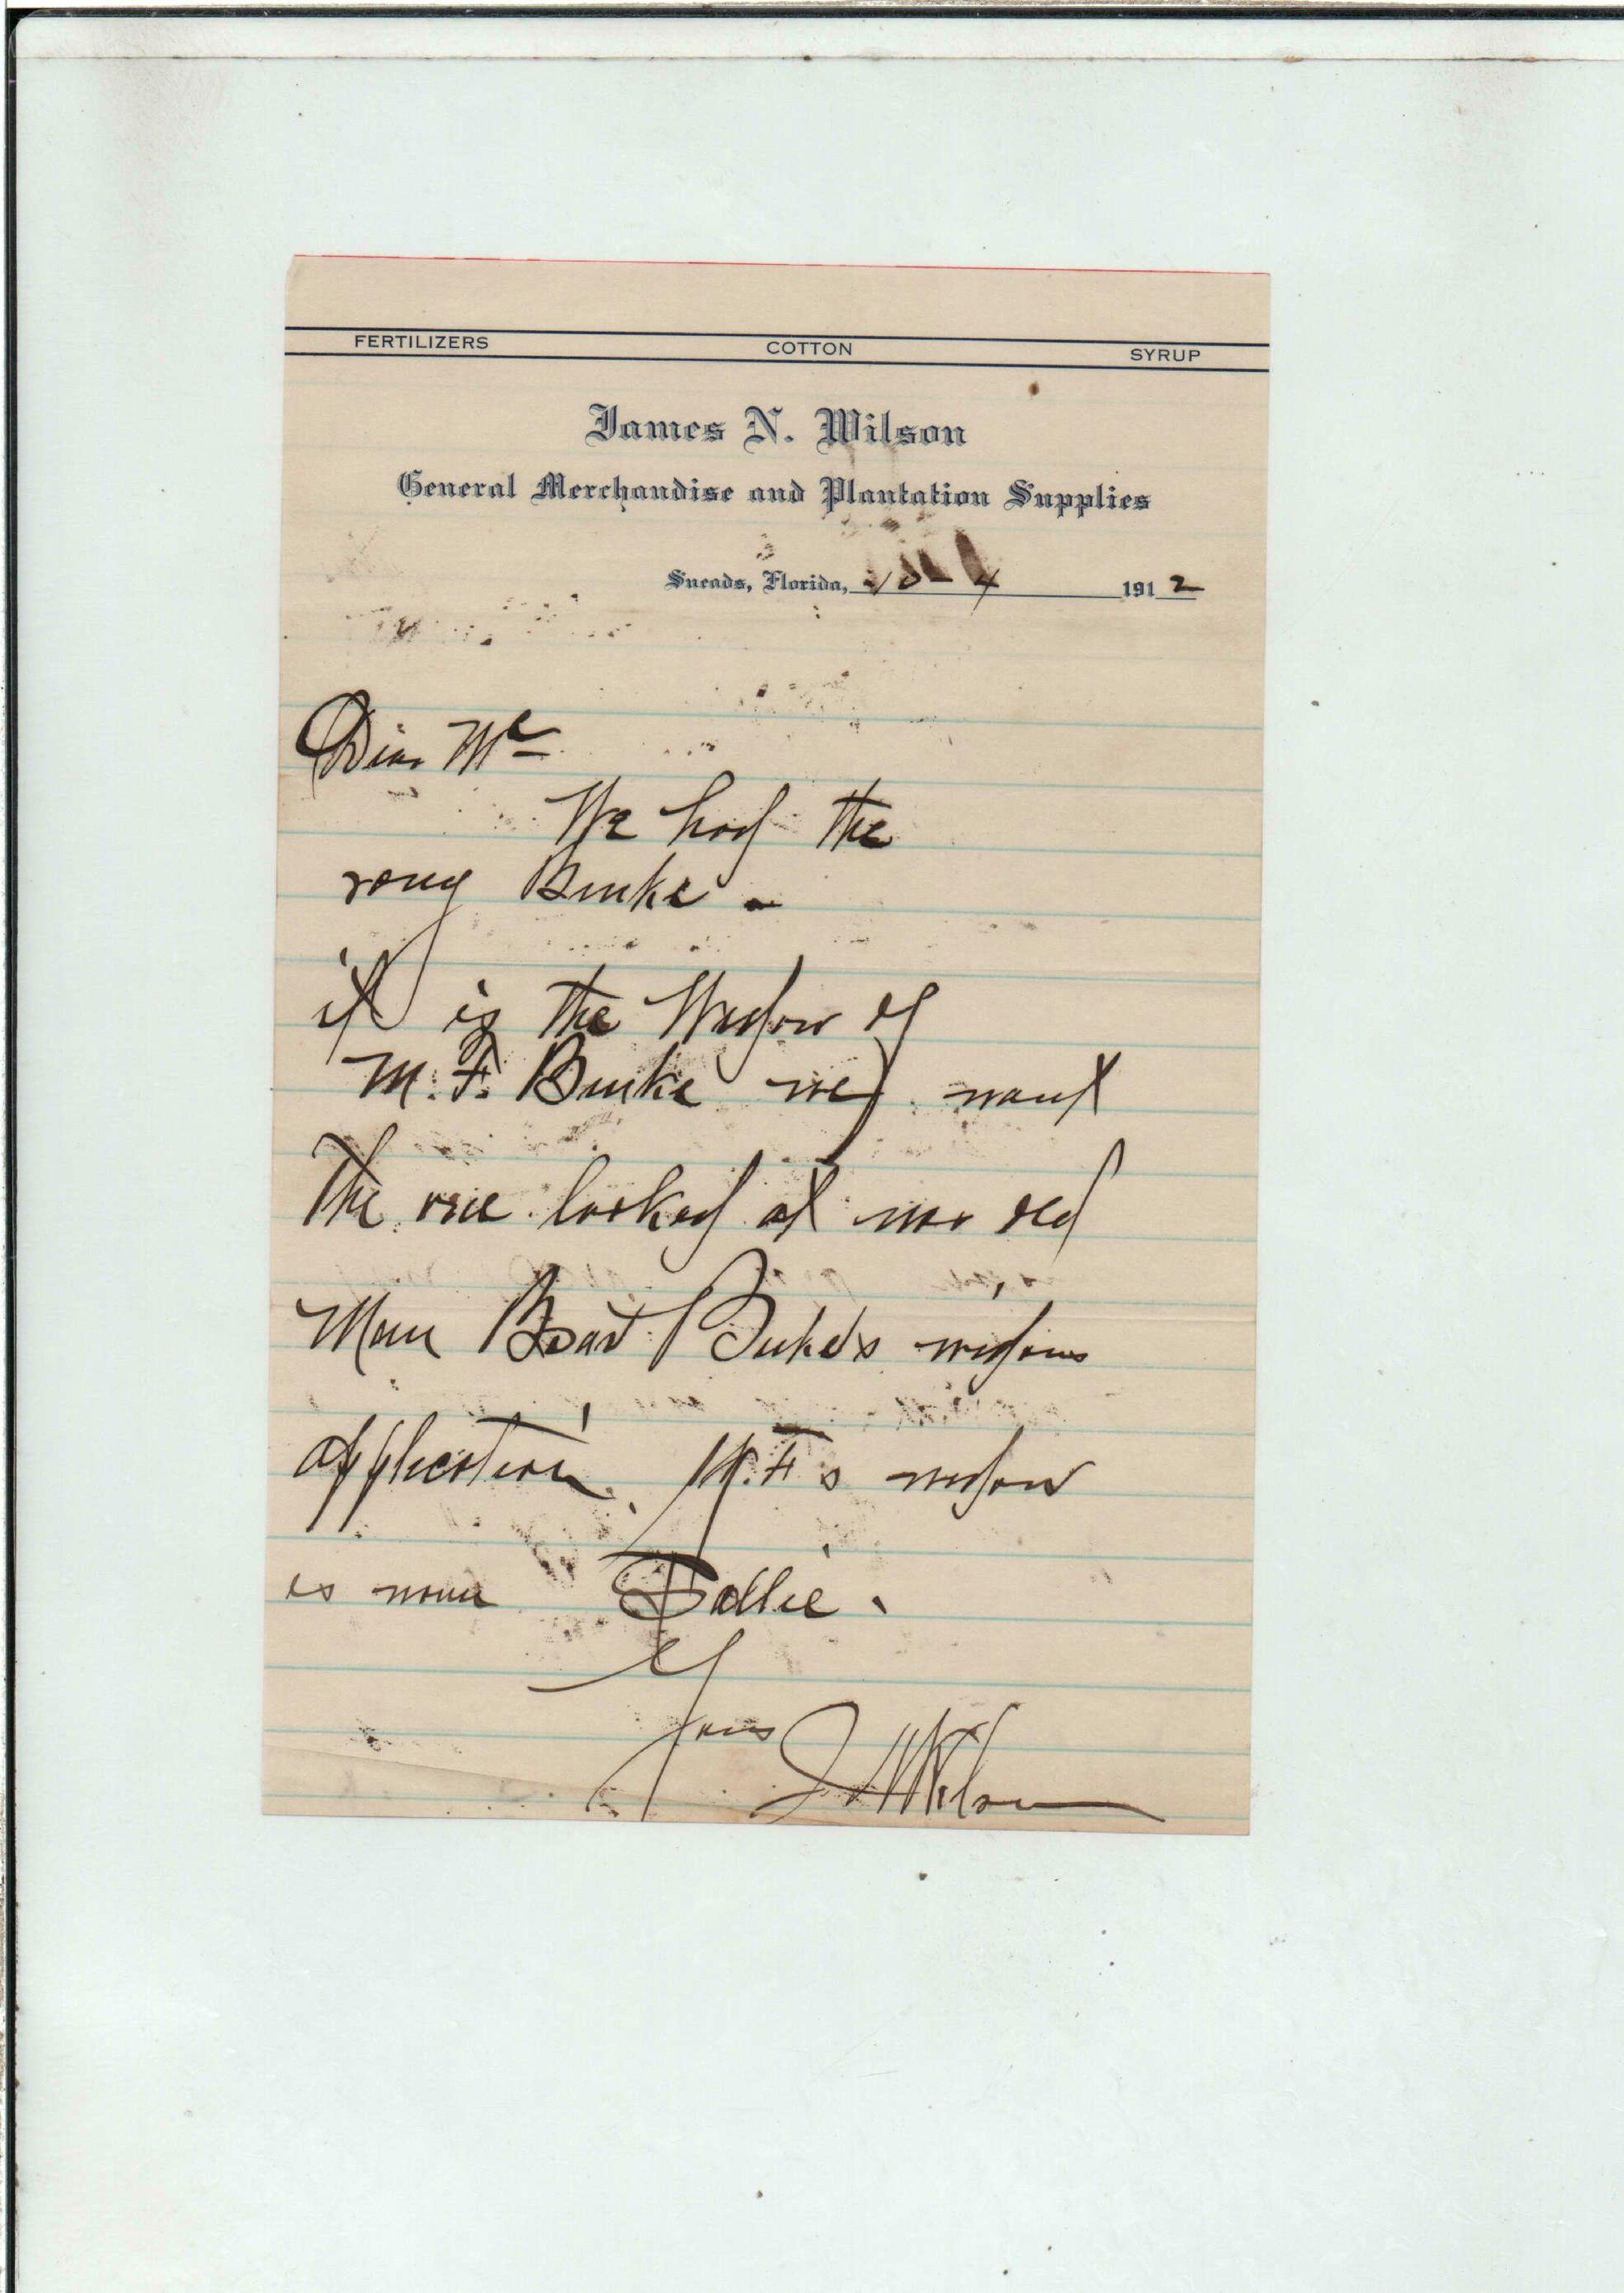 FERTILIZERS COTTON SYRUP
James N. Wilson
General Merchandise and Plantation Supplies
Sneads, Florida, 10-4 1912
Dear Mc
We had the
rong Burke -
it is the Widow of
M. F. Burke we want
The one looked at was old
Man Burke's widows
application. M. F's widow
is name Dollie.
Yours
J N Wilson